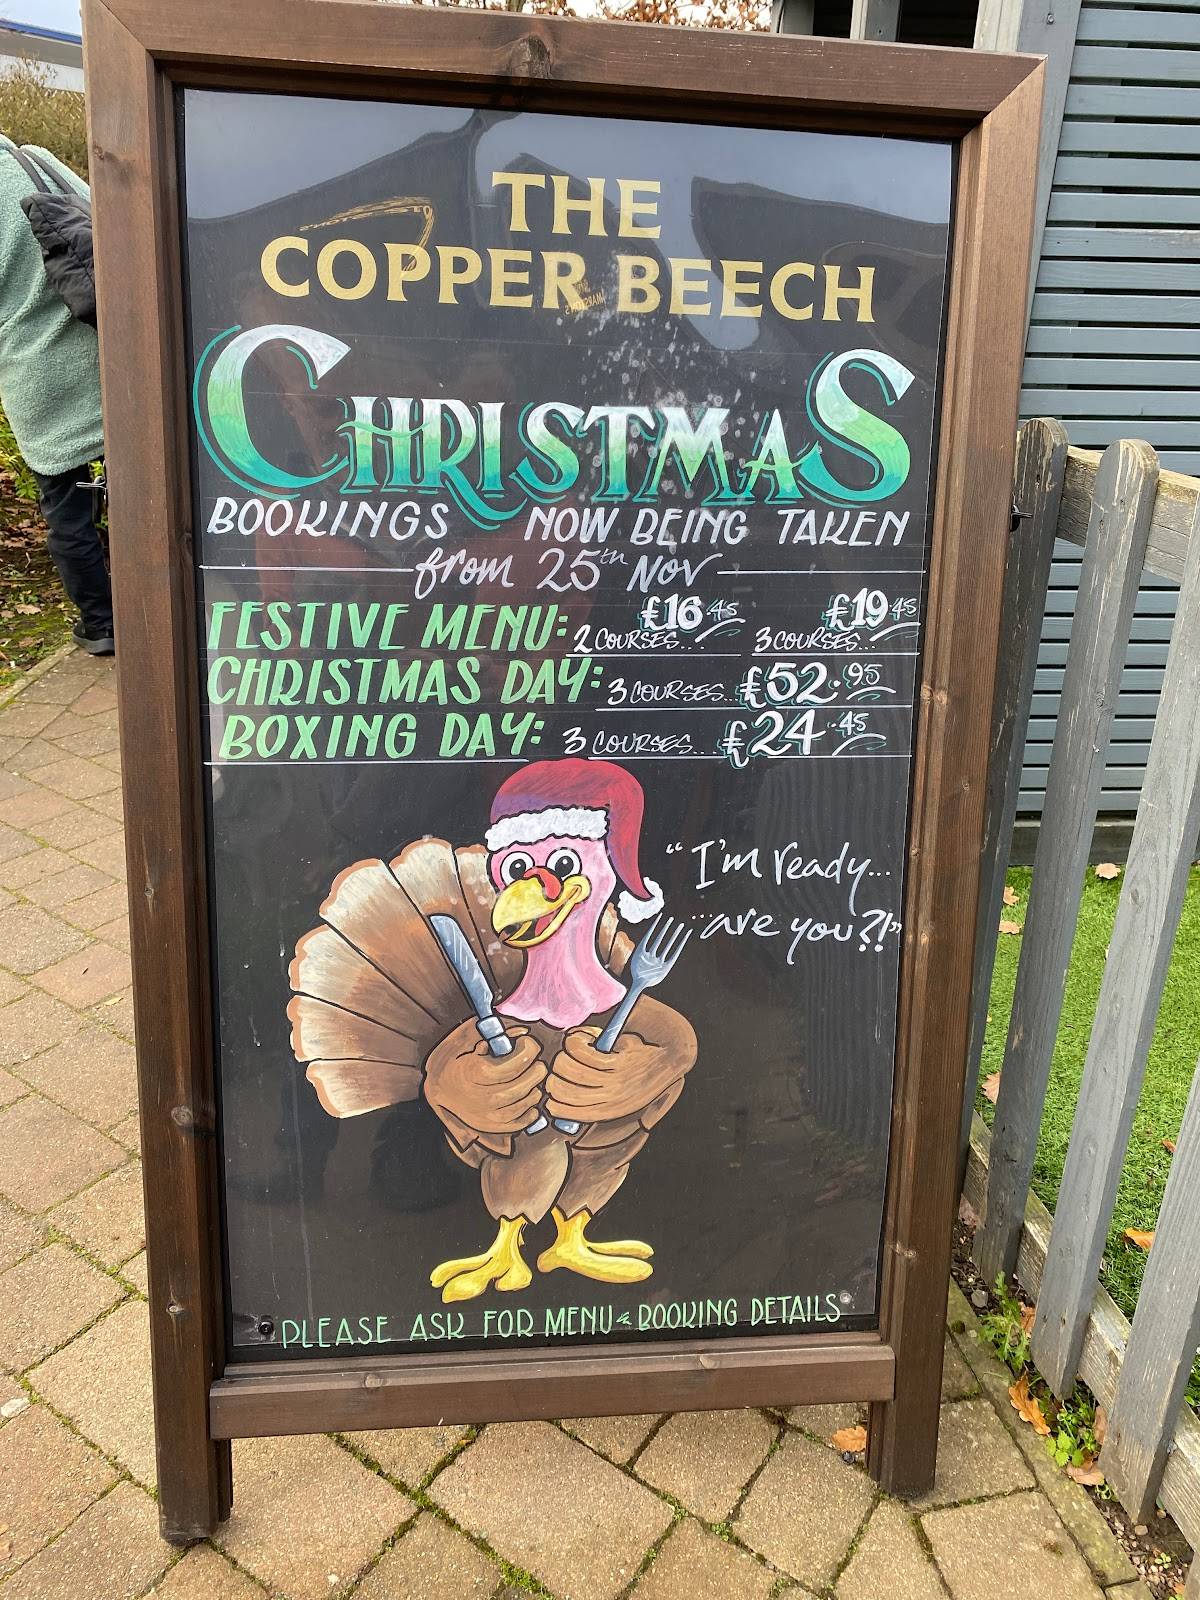 THE
COPPER BEECH
CHRISTMAS
BOOKINGS NOW BEING TAKEN
from 25th Nov
FESTIVE MENU: 2 COURSES... £16.45 3 COURSES... £19.45
CHRISTMAS DAY: 3 COURSES... £52.95
BOXING DAY: 3 COURSES... £24.45
"I'm ready...
...are you?!"
PLEASE ASK FOR MENU & BOOKING DETAILS